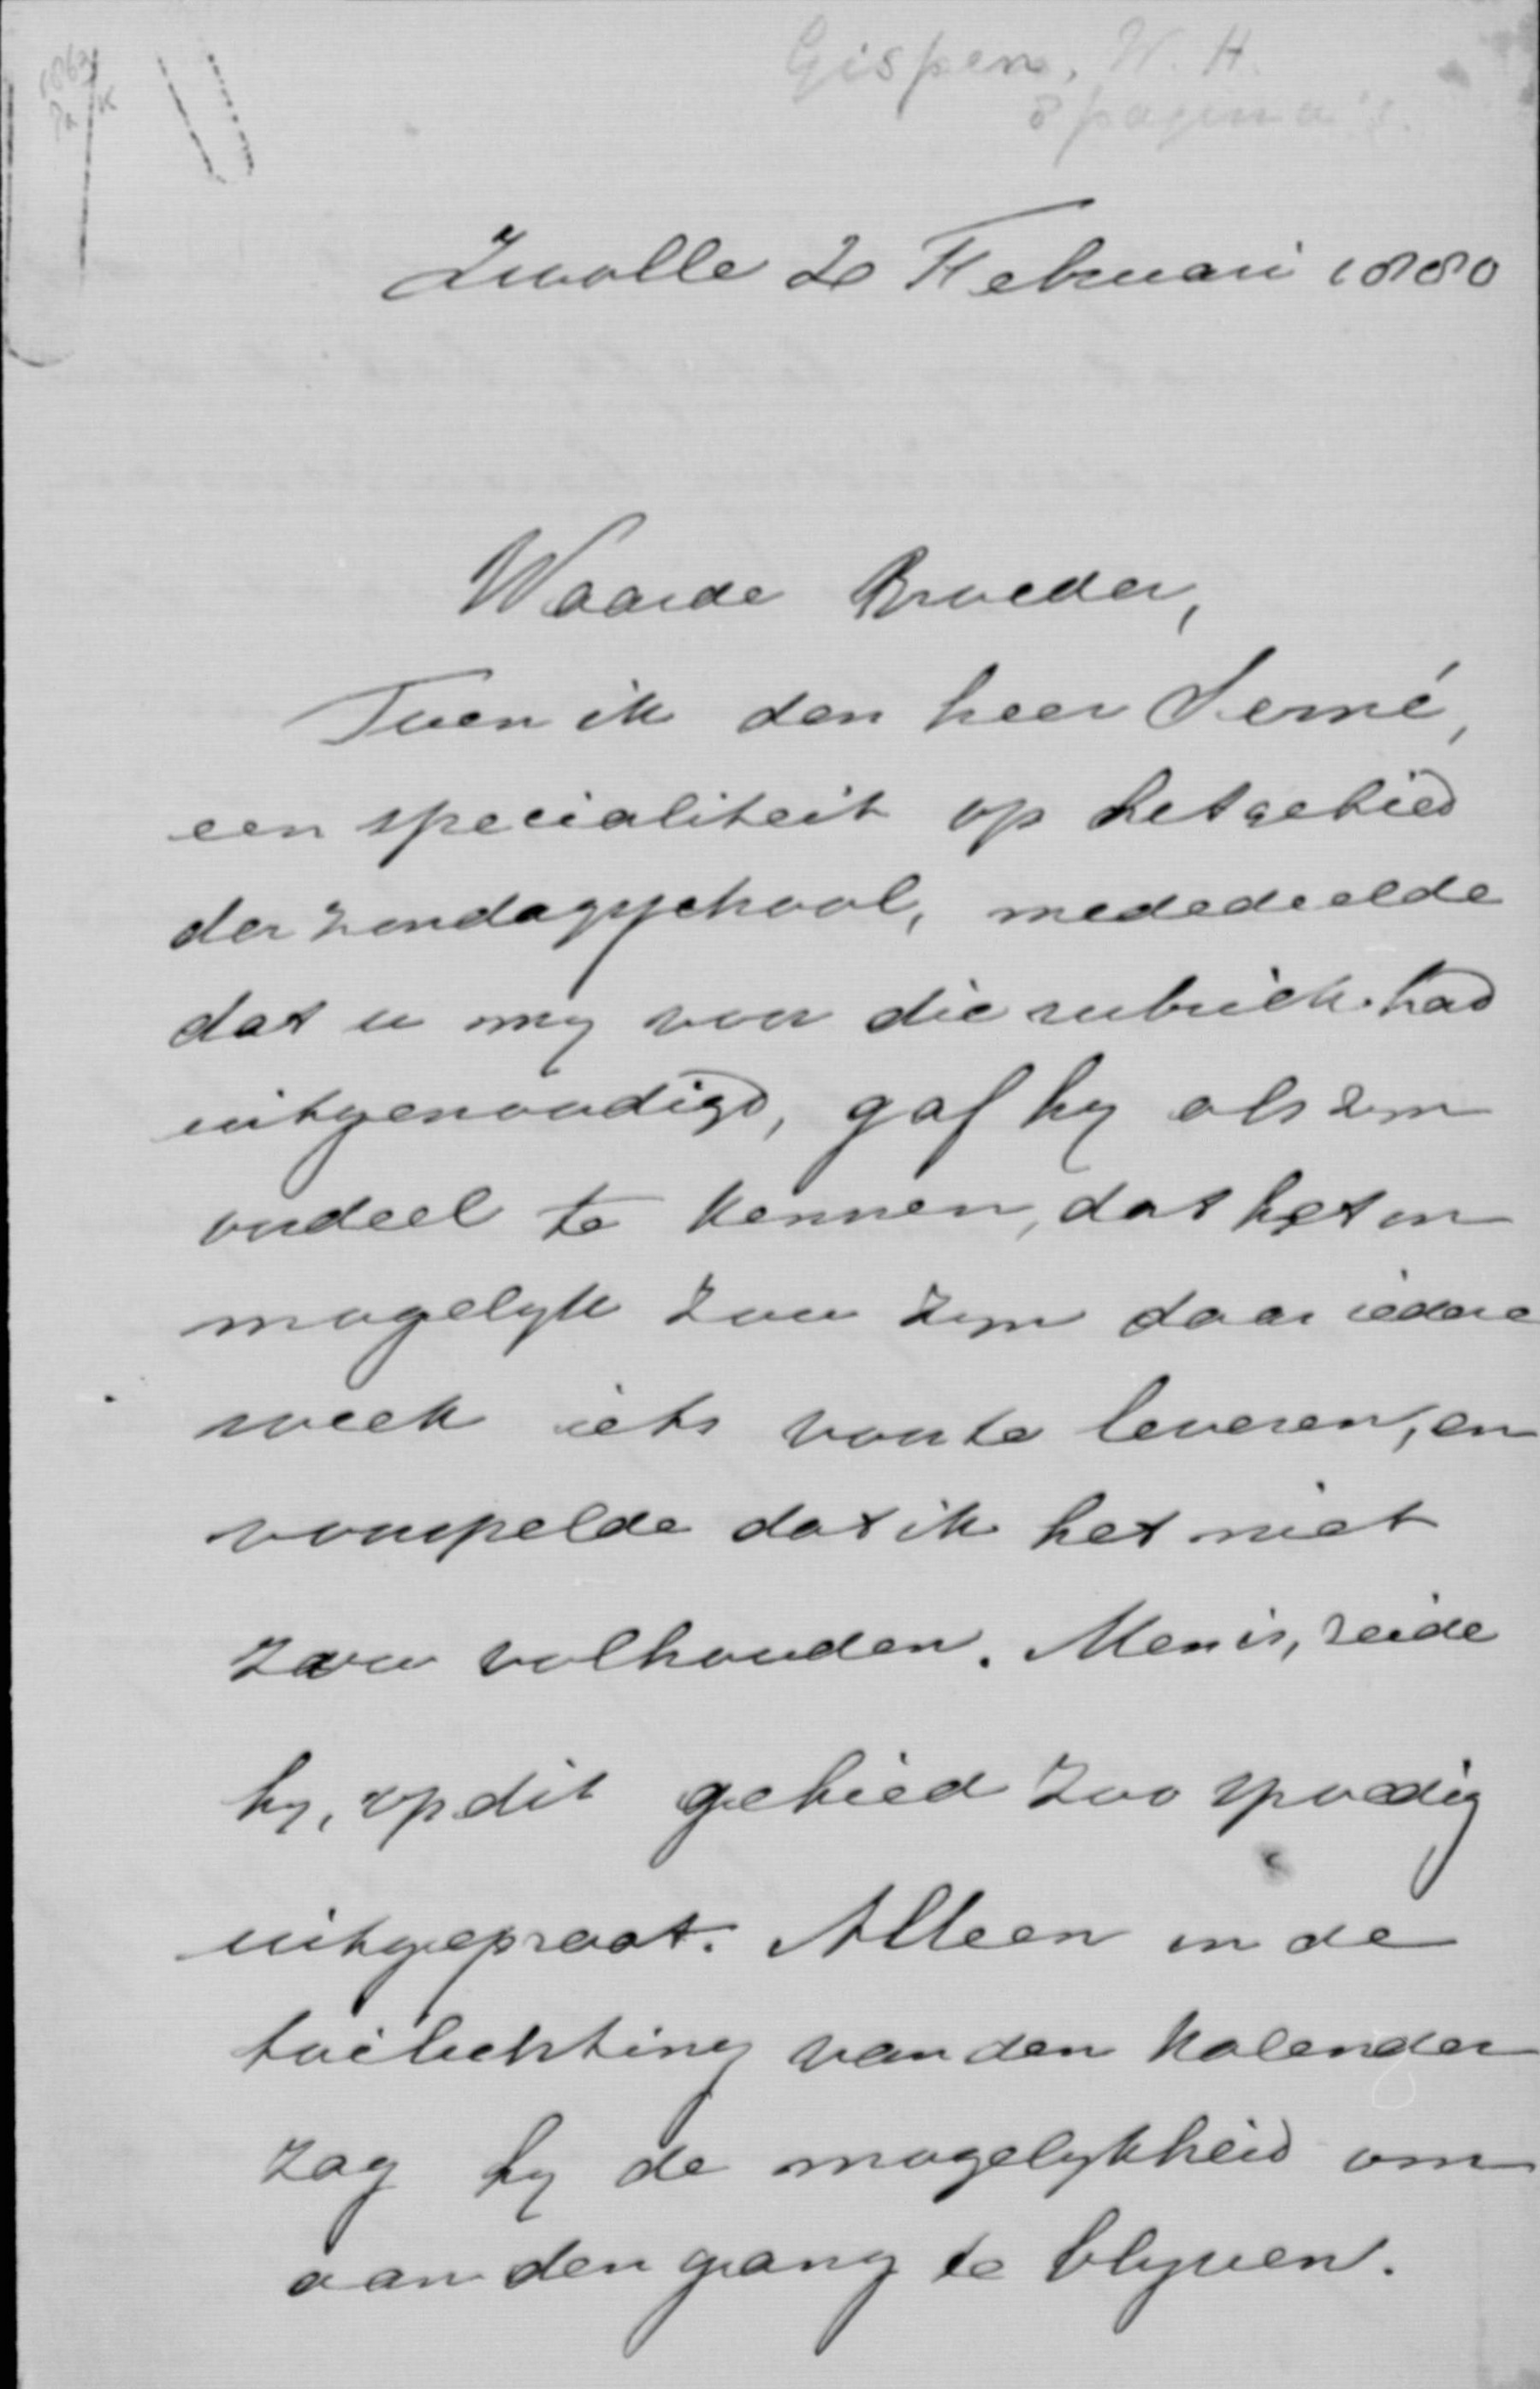 Gispen, W. H.
8 pagina's.
Zwolle 2 Februari 1880
Waarde Broeder,
Toen ik den heer Serné,
een specialiteit op het gebied
der zondagsschool, mededeelde
dat u my voor die rubriek had
uitgenoodigd, gaf hy als zyn
oordeel te kennen, dat het on
mogelyk zou zyn daar iedere
week iets voor te leveren, en
voorspelde dat ik het niet
zou volhouden. Men is, zeide
hy, op dit gebied zoo spoedig
uitgepraat. Alleen in de
toelichting van den Kalender
zag hy de mogelykheid om
aan den gang te blyven.